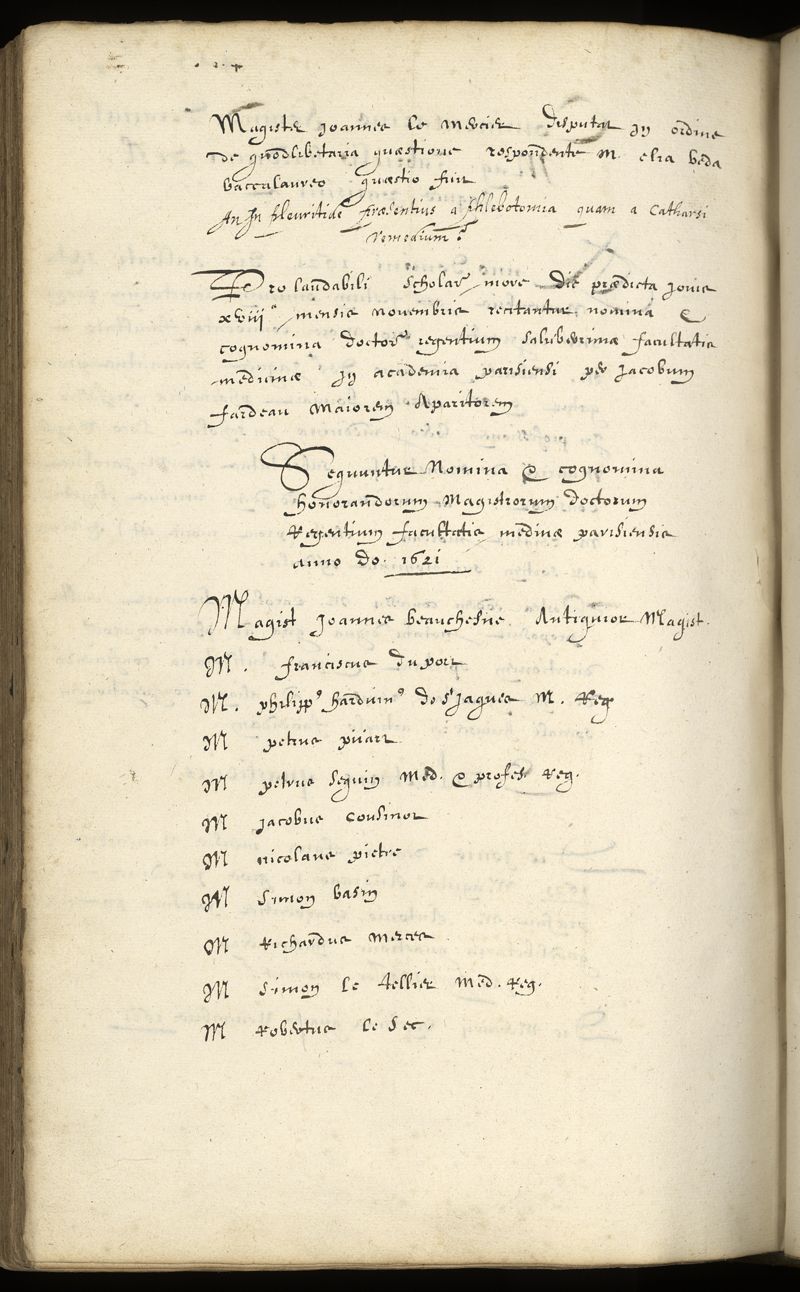 Magister Joannes le Mercier disputat in ordine
de quodlibetaria quæstione respondente M. elia beda
baccalaureo quæstio fuit
An In pleuritide præsentius a phlebotomia quam a Catharsi
remedium?
Pro laudabili scholar more die prædicta Jovis
xviii a mensis novembris recitantur nomina &
cognomina doctor regentium saluberrimæ facultatis
medicinæ in academia parisiensi per Jacobum
fardeau Maiorem Aparitorem
Sequuntur Nomina & cognomina
honorandorum Magistrorum doctorum
Regentium facultatis medinæ parisiensis
anno do. 1621
Magist Joannes beauchesne Antiquior Magist.
M. franciscus duport
M. philipp9 harduin9 de St Jaques M. Reg
M petrus pijart
M petrus seguin Med. & profes Reg.
M jacobus cousinot
M nicolaus pietre
M simon basin
M Richardus Merces
M simon le tellier Med. Reg.
M Robertus le sec.